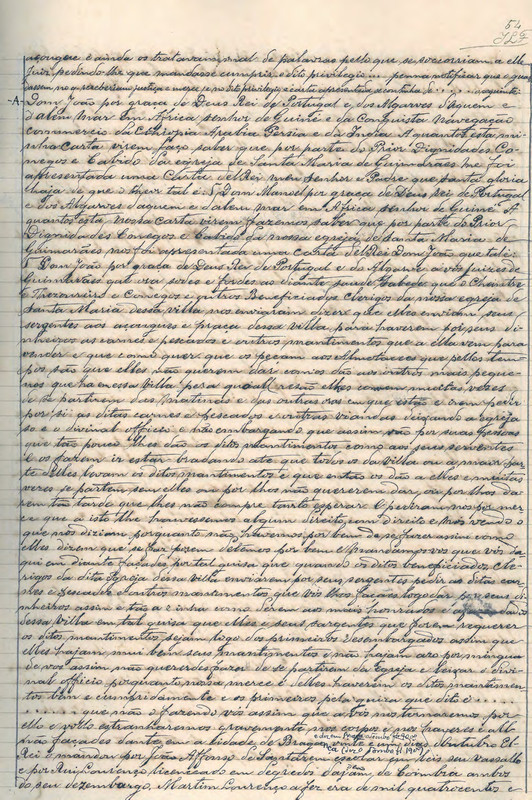 54
açougue e ainda os tratavam mal de palavras pello que se socorriam a elle
Juiz pedindo lhe que mandasse cumprir o dito privilegio
-A- Dom João por graça de Deus Rei de Portugal e dos Algarves d'aquem e
d'alem mar em Africa senhor de Guiné e da Conquista navegação
comercio da Ethiopia Arabia Persia e da India A quantos esta mi
nha carta virem faço saber que por parte do Prior Dignidades Co-
negos e Cabido da egreja de Santa Maria de Guimarães me foi
apresentada uma Carta del Rei meu senhor e Padre que santa gloria
haja de que o theor tal é. Dom Manuel por graça de Deus Rei de Portugal
e dos Algarves d'aquem e d'alem mar em Africa senhor de Guiné A
quantos esta nossa carta virem fazemos saber que por parte do Prior
Dignidades Conegos e Cabido da nossa egreja de Santa Maria de
Guimarães nos foi apresentada uma carta del Rei Dom João que tal é:
Dom João por graça de Deus Rei de Portugal e do Algarve a vós juizes de
Guimarães que ora sodes e fordes ao diante saude sabede que o Chantre
e Thezoureiro e Conegos e outros Beneficiados Clerigos da nossa egreja de
Santa Maria dessa villa nos enviaram dizer que elles enviam seus
sergentes aos açougues e praça dessa villa para haverem por seus di-
nheiros as carnes e pescados e outros mantimentos que a ella vem para
vender e que como quer que os peçam aos Almotaces que pellos tem-
pos são que elles não querem dar como dão aos outros mais peque-
nos que ha nessa villa pera qual resão elles comem muitas vezes
e se partem das matinas e das outras oras em que estão e vem pedir
por si as ditas carnes e pescados e outras viandas deixando a egreja
só e o divinal officio e não embargando que assim vão por suas pessoas
que tão pouco lhes dão os ditos mantimentos como aos seus serventes
e os fazem ir estar bradando até que todos os da villa ou a maior par-
te delles levam os ditos mantimentos e que então os dão a elles e muitas
vezes se partem sem elles ou por lhos não quererem dar, ou por lhos da-
rem tão tarde que lhes não compre tanto esperar E pediram nos por mer-
ce que a isto lhe houvessemos algum direito, com direito e nós vendo o
que nos diziam porquanto não havemos por bem de se fazer assim como
elles dizem que se faz fazem Detemos por bem e Mandamos vos que vós da-
qui em diante façades por tal guisa que quando os ditos beneficiados Cle-
rigos da dita Igreja dessa villa enviarem por seus sergentes pedir as ditas car-
nes e Pescados e outros mantimentos que vós lhos façaes logo dar por seus di-
nheiros assim e tão azinha como derem aos mais honrados
dessa villa em tal guisa que elles e seus sargentos que forem requerer
os ditos mantimentos sejam logo dos primeiros desembargados assim que
elles hajam mui bem seus mantimentos e não hajam asó por mingua
de vós assim não quererdes fazer de se partirem da Egreja e leixar o divi-
nal officio porquanto nossa merce é delles haverem os ditos mantimen-
tos bem e cumpridamente e os primeiros pela guiza que dito é
que não o fazendo vós assim que a vós nos tornaremos por
ello e vollo estranharemos gravemente nos corpos e nos haveres e al
não façades dante em a cidade de Bragança vinte e um dias Outubro El-
Rei o mandou por João Affonso de Santarem escolar em leis seu vassallo
e por Rui Lourenço licenciado em degredos dayam de Coimbra ambos
do seu dezembargo. Martim Lourenço a fez era de mil quatrocentos e